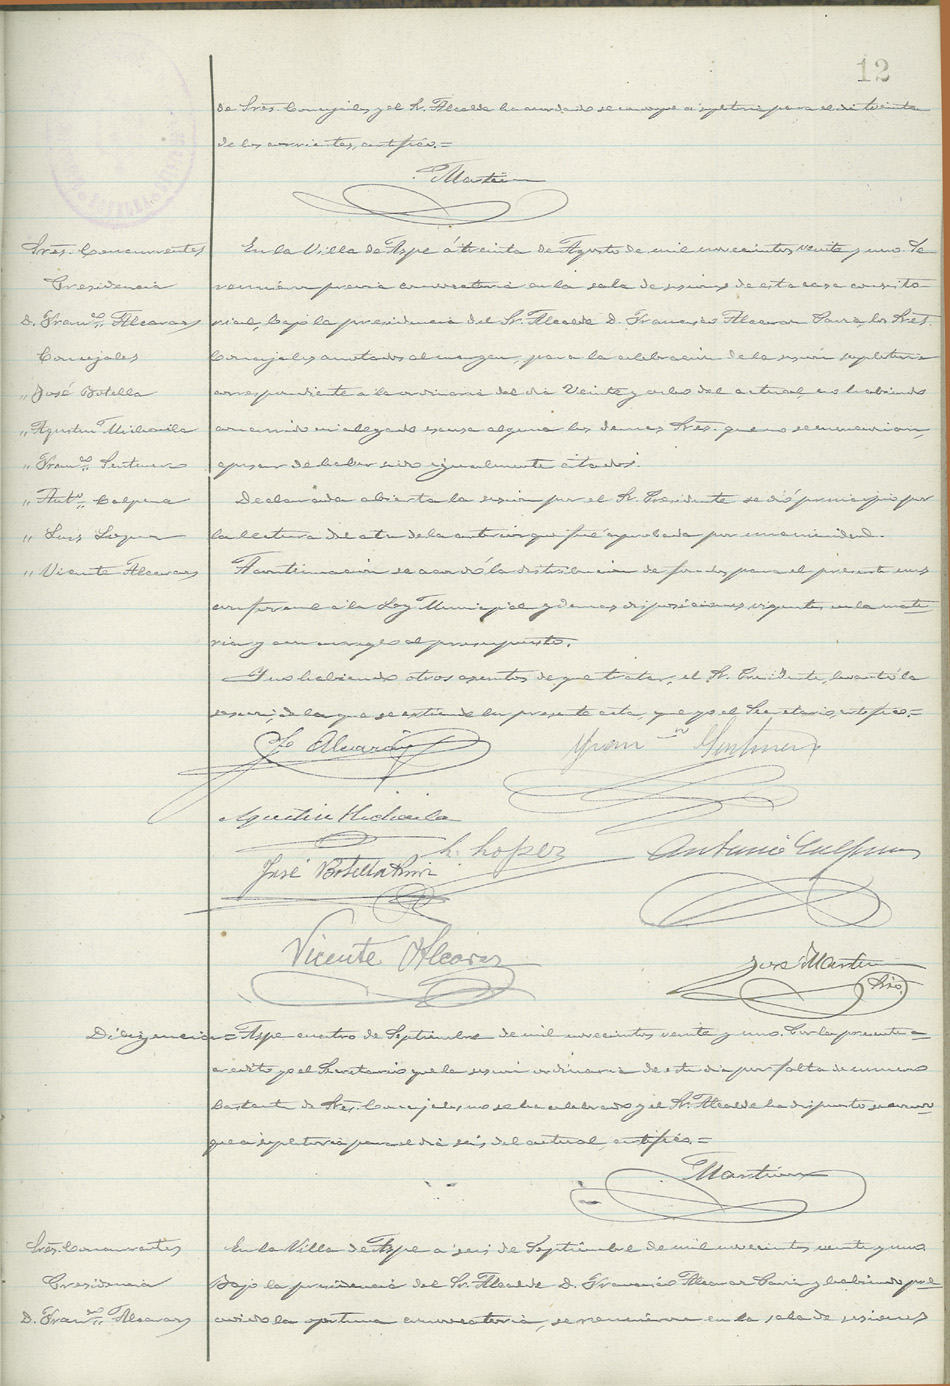 12
de Sres. Concejales, y el Sr. Alcalde ha acordado se convoque a supletoria para el dia treinta
de los corrientes, certifico.=
Martinez
Sres. Concurrentes
Presidencia
D. Franco. Alcaraz
Concejales
" José Botella
" Agustin Mira
" Franco.
" Anto. Calpena
" Luis Lopez
" Vicente Alcaraz
En la Villa de Aspe á treinta de Agosto de mil novecientos veinte y uno. Se
reunieron previa convocatoria en la sala de sesiones de esta casa consisto-
rial, bajo la presidencia del Sr. Alcalde D. Francisco Alcaraz los Sres.
Concejales anotados al margen, para la celebracion de la sesión supletoria
correspondiente a la ordinaria del dia Veinte y ocho del actual no habiendo
concurrido ni alegado escusa alguna los demas Sres. que no se mencionan,
apesar de haber sido igualmente citados.
Declarada abierta la sesion por el Sr. Presidente se dió principio por
la lectura del acta de la anterior que fué aprobada por unanimidad.
A continuacion se acordó la distribucion de fondos para el presente mes
conforme a la Ley Municipal y demas disposiciones vigentes en la mate-
ria y con arreglo al presupuesto.
Y no habiendo otros asuntos de que tratar, el Sr. Presidente, levantó la
sesion, de la que se extiende la presente acta, que yo el Secretario, certifico.=
F. Alcaraz
Fran
Agustin
L. Lopez
José Botella
Antonio Calpena
Vicente Alcaraz
José Martinez
Srio.
Diligencia = Aspe cuatro de Septiembre de mil novecientos veinte y uno. Por la presente
acredito yo el Secretario que la sesion ordinaria de este dia por falta de numero
bastante de Sres. Concejales no se ha celebrado y el Sr. Alcalde ha dispuesto se convo-
que a supletoria para el dia seis, del actual, certifico.=
Martinez
Sres. Concurrentes
Presidencia
D. Franco. Alcaraz
En la Villa de Aspe a seis de Septiembre de mil novecientos veinte y uno
Bajo la presidencia del Sr. Alcalde D. Francisco Alcaraz y habiendo pre-
cedido la oportuna convocatoria, se reunieron en la sala de sesiones